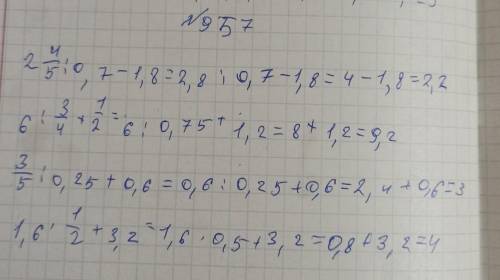 №957
2 4/5 : 0,7 - 1,8 = 2,8 : 0,7 - 1,8 = 4 - 1,8 = 2,2
6 : 3/4 + 1/2 = 6 : 0,75 + 1,2 = 8 + 1,2 = 9,2
3/5 : 0,25 + 0,6 = 0,6 : 0,25 + 0,6 = 2,4 + 0,6 = 3
1,6 · 1/2 + 3,2 = 1,6 · 0,5 + 3,2 = 0,8 + 3,2 = 4